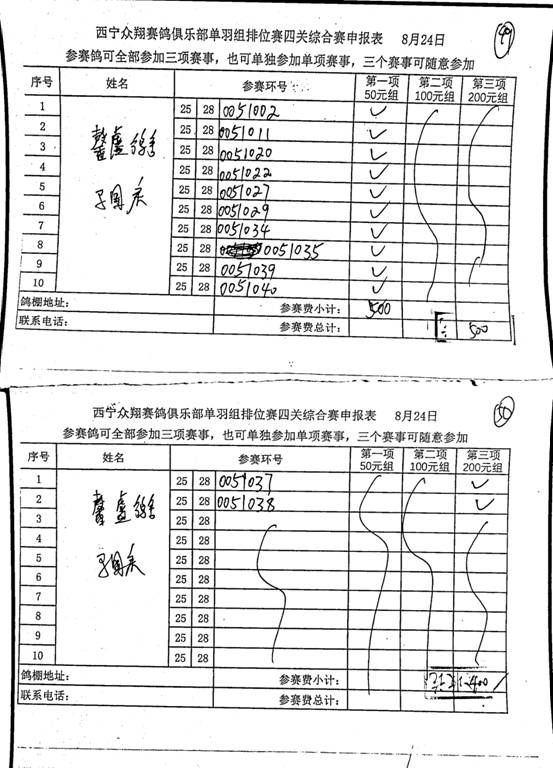 西宁众翔赛鸽俱乐部单羽组排位赛四关综合赛申报表 8月24日 49
参赛鸽可全部参加三项赛事，也可单独参加单项赛事，三个赛事可随意参加
序号 姓名 参赛环号 第一项 50元组 第二项 100元组 第三项 200元组
1 25 28 0051002 ✓
2 25 28 0051011 ✓
3 25 28 0051020 ✓
4 25 28 0051022 ✓
5 25 28 0051027 ✓
6 25 28 0051029 ✓
7 25 28 0051034 ✓
8 25 28 0051035 ✓
9 25 28 0051039 ✓
10 25 28 0051040 ✓
鸽棚地址： 参赛费小计： 500
联系电话： 参赛费总计： 500
西宁众翔赛鸽俱乐部单羽组排位赛四关综合赛申报表 8月24日 50
参赛鸽可全部参加三项赛事，也可单独参加单项赛事，三个赛事可随意参加
序号 姓名 参赛环号 第一项 50元组 第二项 100元组 第三项 200元组
1 25 28 0051037 ✓
2 25 28 0051038 ✓
3 25 28
4 25 28
5 25 28
6 25 28
7 25 28
8 25 28
9 25 28
10 25 28
鸽棚地址： 参赛费小计： 400
联系电话： 参赛费总计：